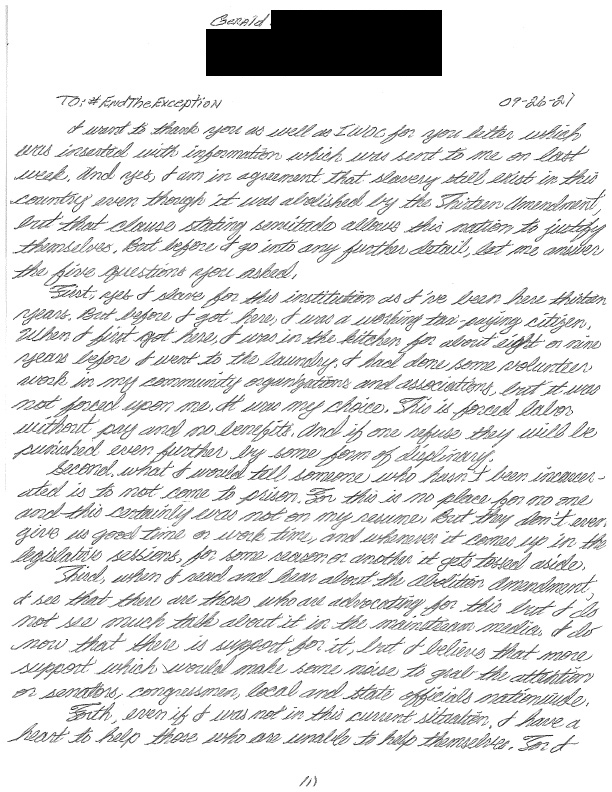 Gerald
TO: #EndTheException 09-26-21
I want to thank you as well as IWOC for you letter which
was inserted with information which was sent to me on last
week. And yes, I am in agreement that slavery still exist in this
country even though it was abolished by the Thirteen Amendment,
but that clause stating servitado allows this nation to justify
themselves. But before I go into any further detail, let me answer
the five questions you asked.
First, yes I slave for this institution as I've been here thirteen
years. But before I got here, I was a working tax-paying citizen.
When I first got here, I was in the kitchen for about eight or nine
years before I went to the laundry. I had done some volunteer
work in my community organizations and associations, but it was
not forced upon me. It was my choice. This is forced labor
without pay and no benefits. And if one refuse they will be
punished even further by some form of displinary.
Second, what I would tell someone who hasn't been incarcer-
ated is to not come to prison. For this is no place for no one
and this certainly was not on my resume. But they don't even
give us good time or work time, and whenever it comes up in the
legislative sessions, for some reason or another it gets tossed aside.
Third, when I read and hear about the Abolition Amendment,
I see that there are those who are advocating for this but I do
not see much talk about it in the mainstream media. I do
now that there is support for it, but I believes that more
support which would make some noise to grab the attention
or senators, congressmen, local and state officials nationwide.
Forth, even if I was not in this current situation, I have a
heart to help those who are unable to help themselves. For I
(1)